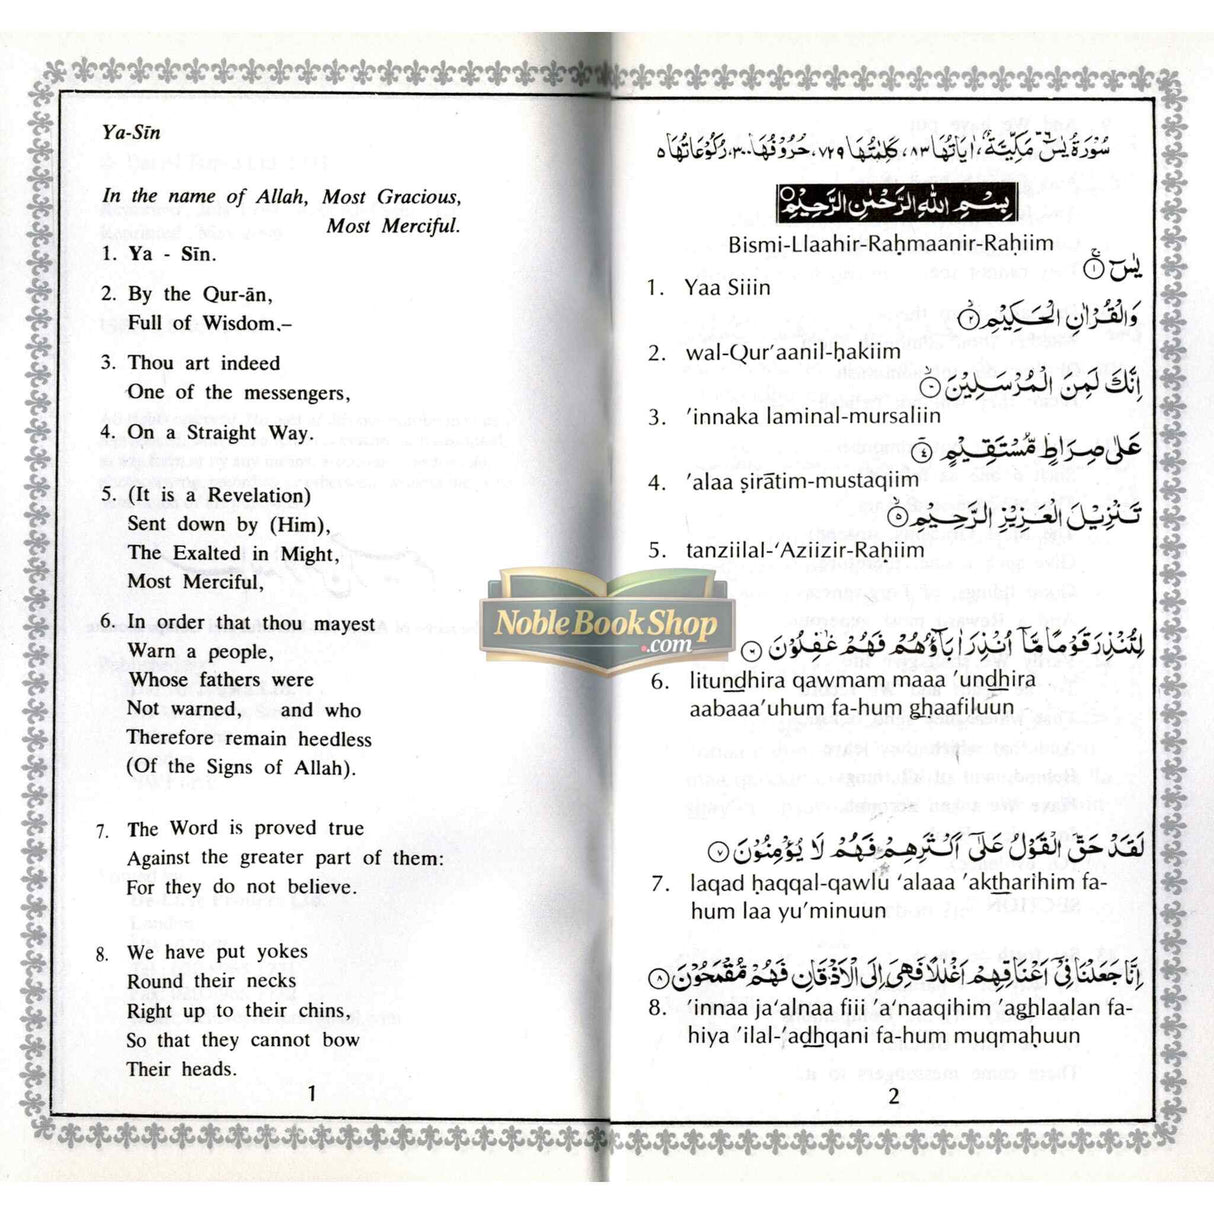 Ya-Sīn
In the name of Allah, Most Gracious,
Most Merciful.
1. Ya - Sīn.
2. By the Qur-ān,
Full of Wisdom,–
3. Thou art indeed
One of the messengers,
4. On a Straight Way.
5. (It is a Revelation)
Sent down by (Him),
The Exalted in Might,
Most Merciful,
6. In order that thou mayest
Warn a people,
Whose fathers were
Not warned, and who
Therefore remain heedless
(Of the Signs of Allah).
7. The Word is proved true
Against the greater part of them:
For they do not believe.
8. We have put yokes
Round their necks
Right up to their chins,
So that they cannot bow
Their heads.
1
سُوْرَةُ يٰسٓ مَكِّيَّةٌ، اٰيَاتُهَا ٨٣، كَلِمٰتُهَا ٧٢٩، حُرُوْفُهَا ٣٠٠٠، رُكُوْعَاتُهَا ٥
بِسْمِ اللهِ الرَّحْمٰنِ الرَّحِيْمِ
Bismi-Llaahir-Raḥmaanir-Raḥiim
يٰسٓ ۚ ١
1. Yaa Siiin
وَالْقُرْاٰنِ الْحَكِيْمِ ٢
2. wal-Qur’aanil-ḥakiim
اِنَّكَ لَمِنَ الْمُرْسَلِيْنَ
3. ’innaka laminal-mursaliin
عَلٰى صِرَاطٍ مُّسْتَقِيْمٍ ٤
4. ‘alaa ṣirāṭim-mustaqiim
تَنْزِيْلَ الْعَزِيْزِ الرَّحِيْمِ ٥
5. tanziilal-‘Aziizir-Raḥiim
NobleBookShop
.com
لِتُنْذِرَ قَوْمًا مَّآ اُنْذِرَ اٰبَآؤُهُمْ فَهُمْ غٰفِلُوْنَ ٦
6. litundhira qawmam maaa ’undhira
aabaaa’uhum fa-hum ghaafiluun
لَقَدْ حَقَّ الْقَوْلُ عَلٰٓى اَكْثَرِهِمْ فَهُمْ لَا يُؤْمِنُوْنَ ٧
7. laqad ḥaqqal-qawlu ‘alaaa ’aktharihim fa-
hum laa yu’minuun
اِنَّا جَعَلْنَا فِيْٓ اَعْنَاقِهِمْ اَغْلٰلًا فَهِيَ اِلَى الْاَذْقَانِ فَهُمْ مُّقْمَحُوْنَ ٨
8. ’innaa ja‘alnaa fiii ’a‘naaqihim ’aghlaalan fa-
hiya ’ilal-’adhqani fa-hum muqmaḥuun
2